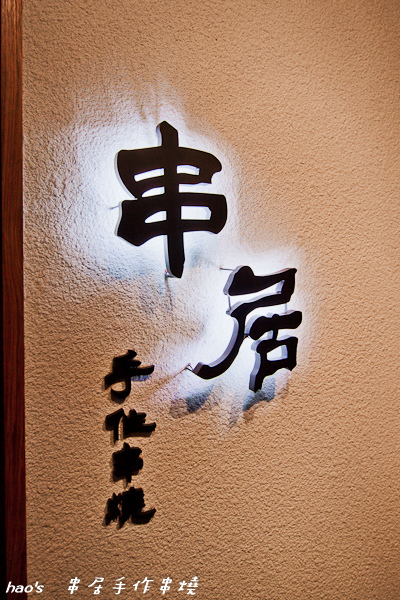 串居
手作串燒
hao's 串居手作串燒